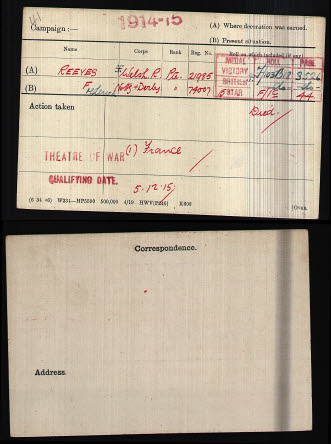 1914-15
Campaign :—
(A) Where decoration was earned.
(B) Present situation.
Name Corps Rank Reg. No. Roll on which included (if any)
MEDAL ROLL PAGE
(A) REEVES Welsh R. Pte. 21985 VICTORY
(B) F Notts & Derby " BRITISH -do- -do-
STAR 44
Action taken Died.
THEATRE OF WAR (1) France
QUALIFYING DATE. 5-12-15
(6 34 46) W234—HP5590 500,000 4/19 HWV(P240) K608 [Over.
Correspondence.
Address.